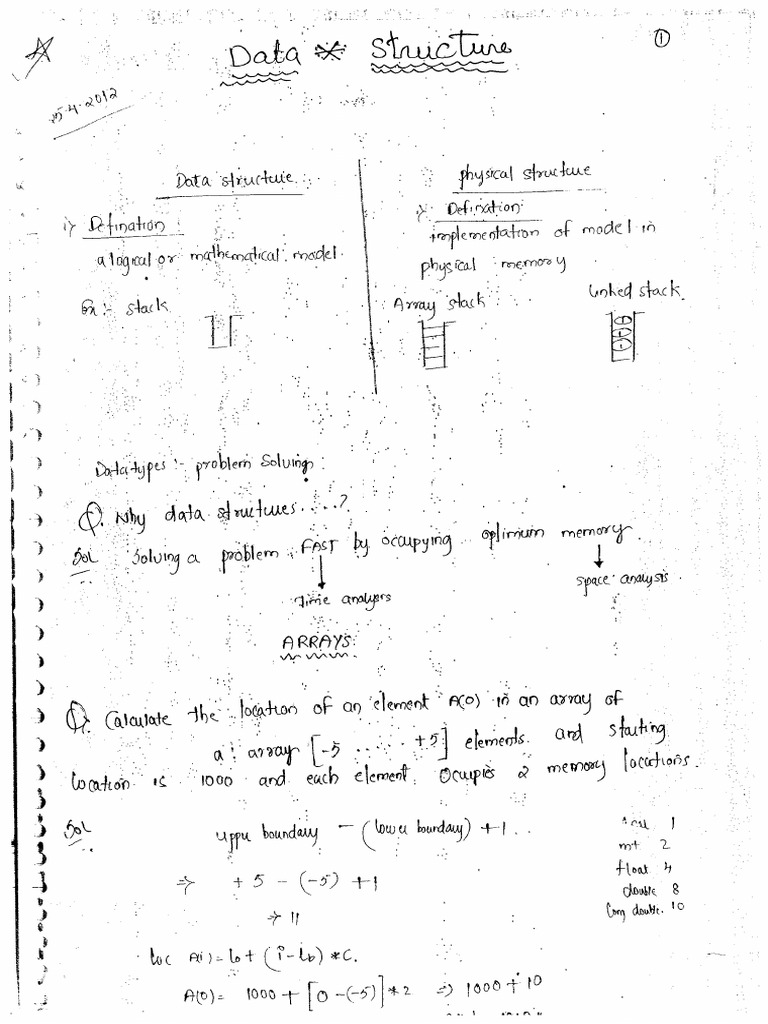 Data Structure
①
25-4-2012
Data structure
i) Defination :
a logical or mathematical model.
Ex:- stack
physical structure
i) Defination:
implementation of model in
physical memory
Array stack
linked stack
Datatypes :- problem solving:
Q. why data structures....?
Sol Solving a problem FAST by occupying optimum memory.
Time analysis
space analysis.
ARRAYS:
Q. Calculate the location of an element A(0) in an array of
a : array [-5 ..... +5] elements and starting
location is 1000 and each element. Occupies 2 memory locations.
Sol
upper boundary - (lower boundary) +1..
⇒ +5 - (-5) +1
⇒ 11
Loc A(i) = Lo + (i-lb) *C.
A(0) = 1000 + [0-(-5)] *2 ⇒ 1000 + 10
1
int 2
float 4
double 8
long double. 10